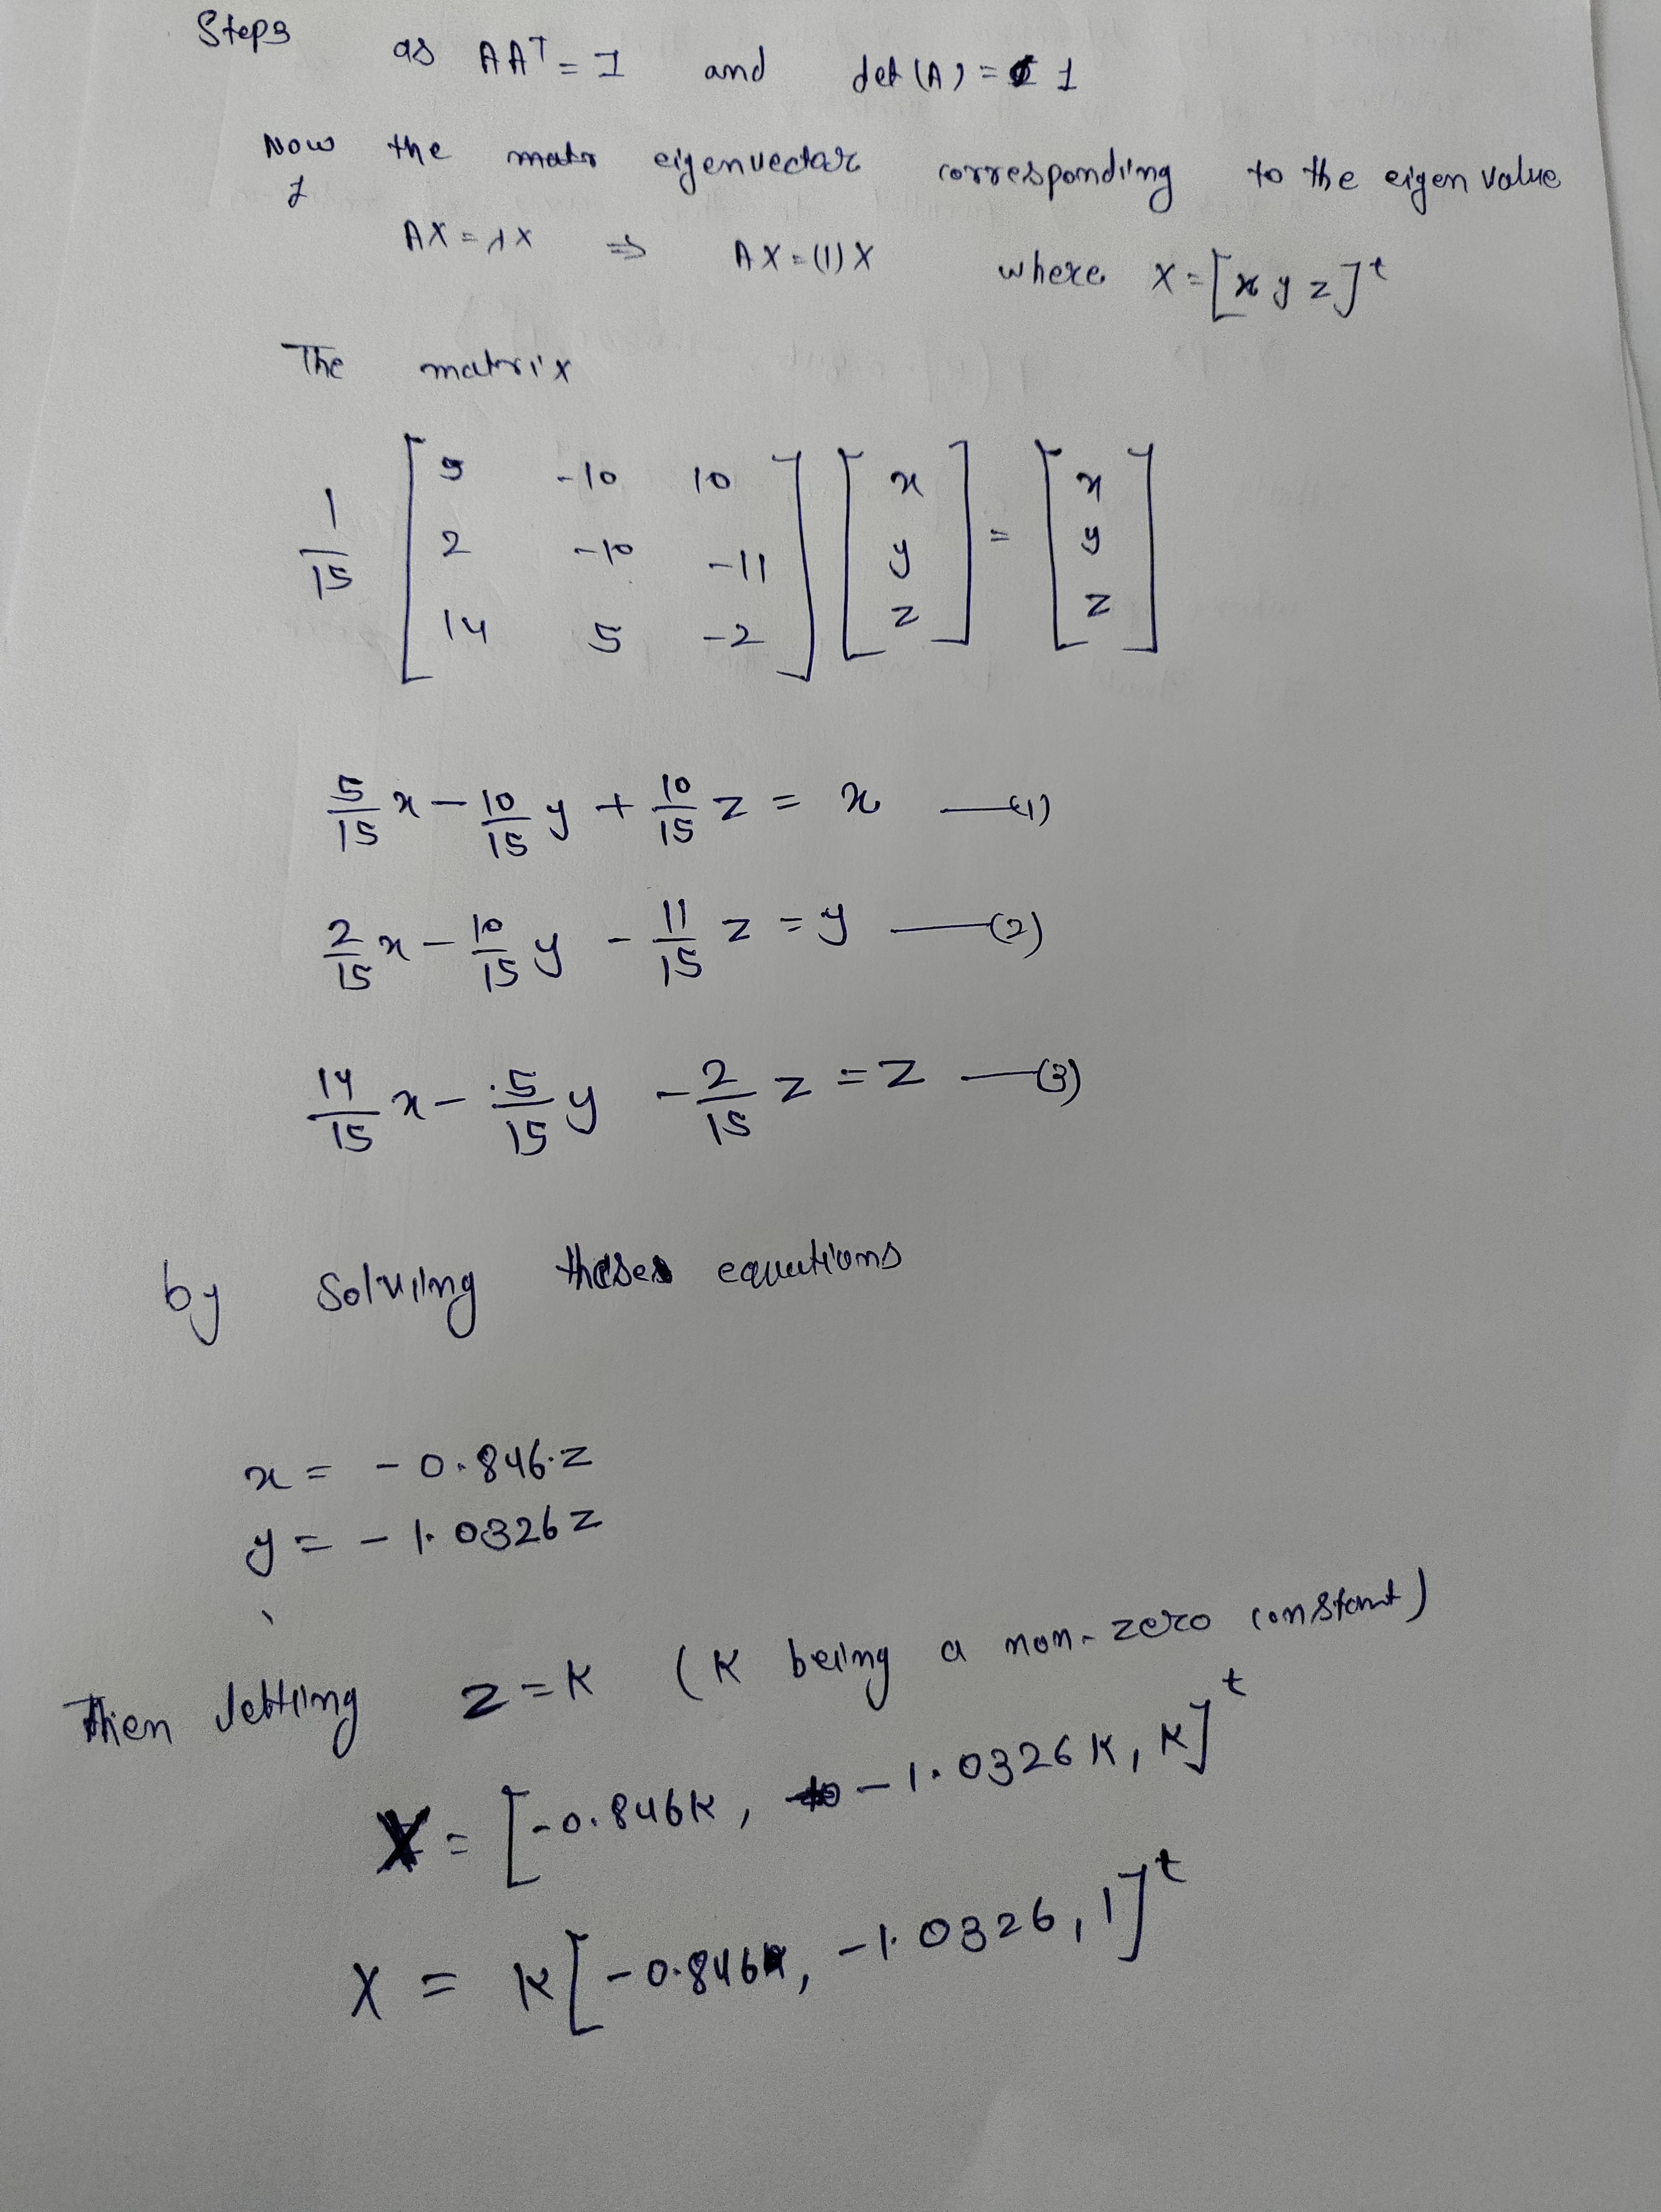 Step 3
as AAᵀ = I and det (A) = 1
Now the eigenvector corresponding to the eigen value
1
AX = λX ⇒ AX = (1) X where X = [x y z]ᵗ
The matrix
1/15 [5 -10 10; 2 -10 -11; 14 5 -2] [x; y; z] = [x; y; z]
5/15 x - 10/15 y + 10/15 z = x —(1)
2/15 x - 10/15 y - 11/15 z = y —(2)
14/15 x - 5/15 y - 2/15 z = z —(3)
by solving these equations
x = - 0.846.z
y = - 1.0326 z
Then letting z = K (K being a non-zero constant)
X = [-0.846K, -1.0326 K, K]ᵗ
X = K [-0.846, -1.0326, 1]ᵗ